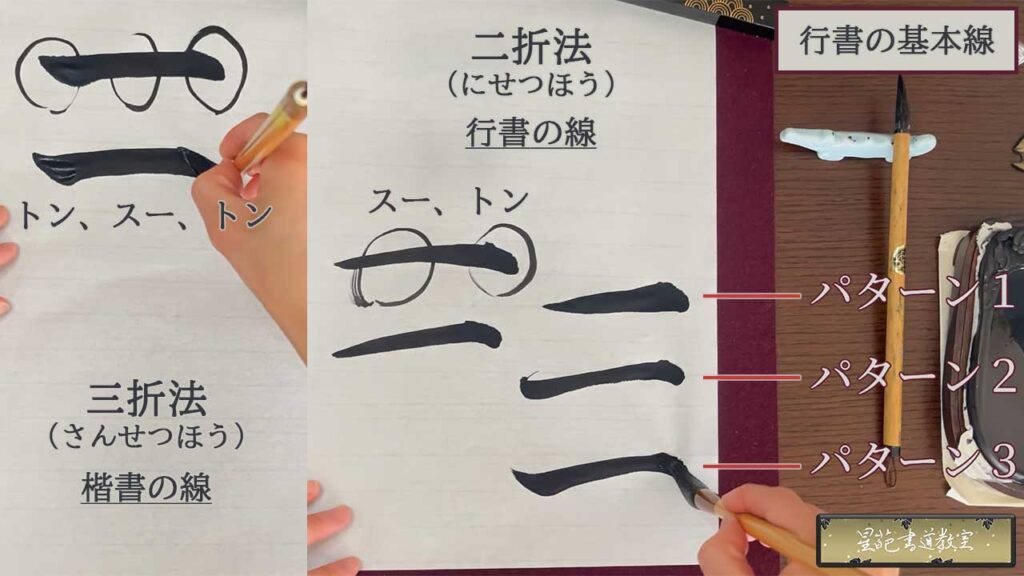 トン、スー、トン
三折法
（さんせつほう）
楷書の線
二折法
（にせつほう）
行書の線
スー、トン
行書の基本線
パターン１
パターン２
パターン３
書道教室